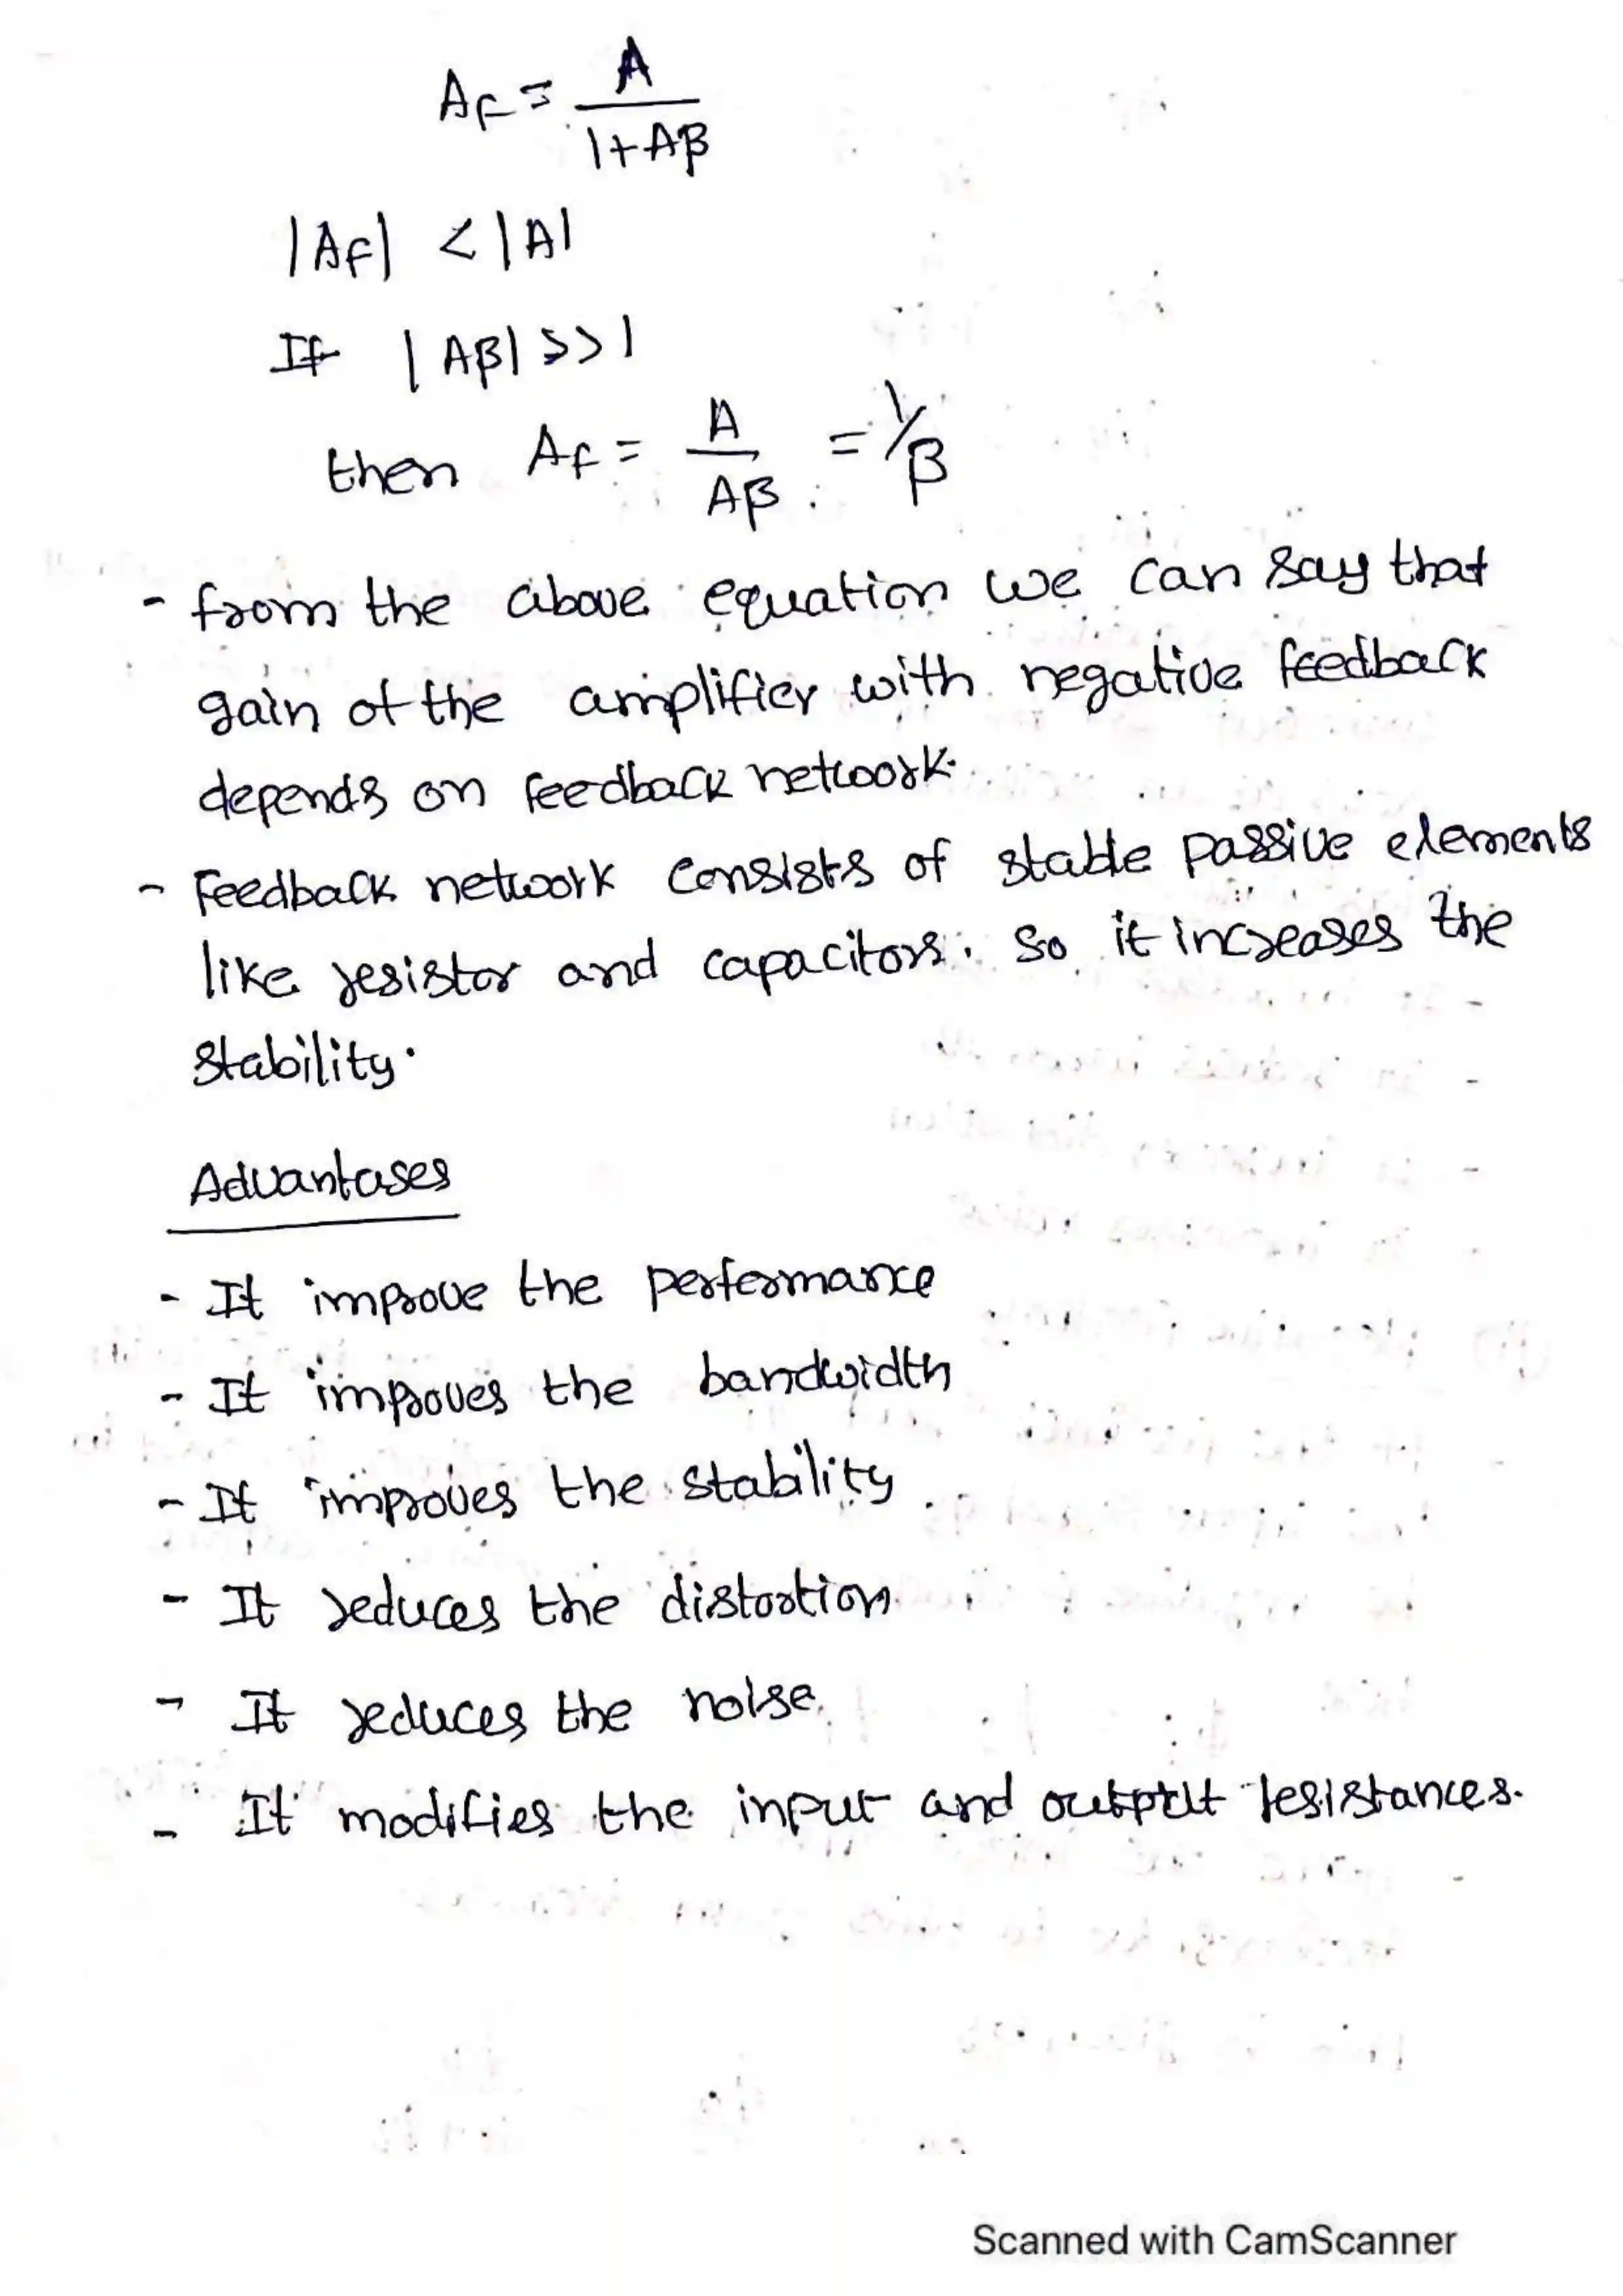 AF = A / 1+Aβ
|AF| < |A|
If |Aβ| >> 1
then Af = A / Aβ = 1/β
- from the above equation we can say that
gain of the amplifier with negative feedback
depends on feedback network.
- Feedback network consists of stable passive elements
like resistor and capacitors. So it increases the
stability.
Advantases
- It improve the performance
- It improves the bandwidth
- It improves the stability
- It reduces the distortion
- It reduces the noise
- It modifies the input and output resistances.
Scanned with CamScanner